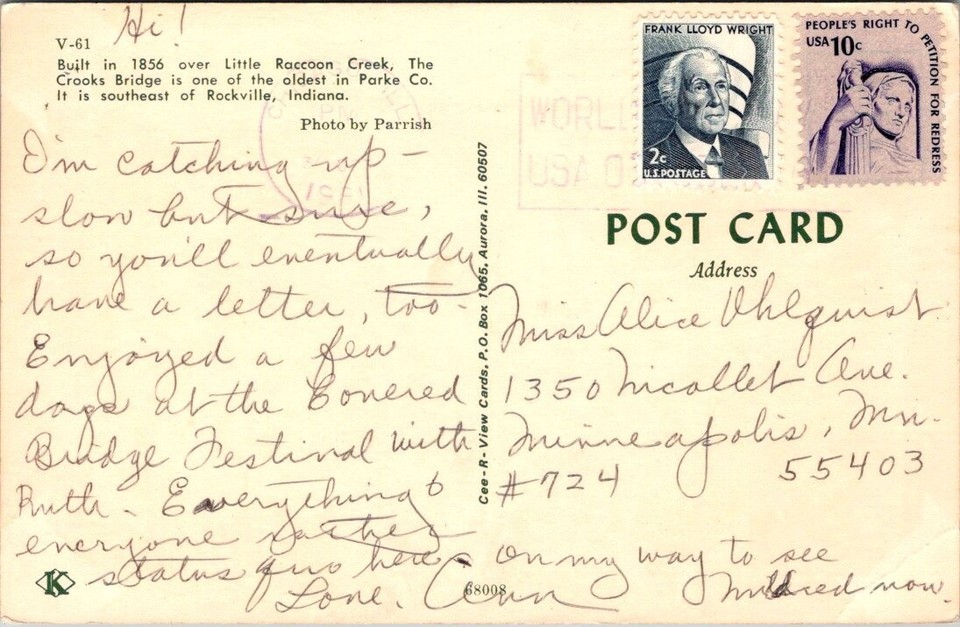 Hi!
V-61
Built in 1856 over Little Raccoon Creek, The
Crooks Bridge is one of the oldest in Parke Co.
It is southeast of Rockville, Indiana.
Photo by Parrish
I'm catching up -
slow but sure,
so you'll eventually
have a letter, too -
Enjoyed a few
days at the Covered
Bridge Festival with
Ruth - Everything &
everyone rather
status quo here -
Love, Ann
K
68008
Cee-R-View Cards, P.O. Box 1065, Aurora, Ill. 60507
FRANK LLOYD WRIGHT
2c
U.S. POSTAGE
PEOPLE'S RIGHT TO PETITION FOR REDRESS
USA 10c
PM
WORL
USA
POST CARD
Address
Miss Alice Ohlquist
1350 Nicollet Ave.
Minneapolis, Mn.
#724 55403
on my way to see
Mildred now.